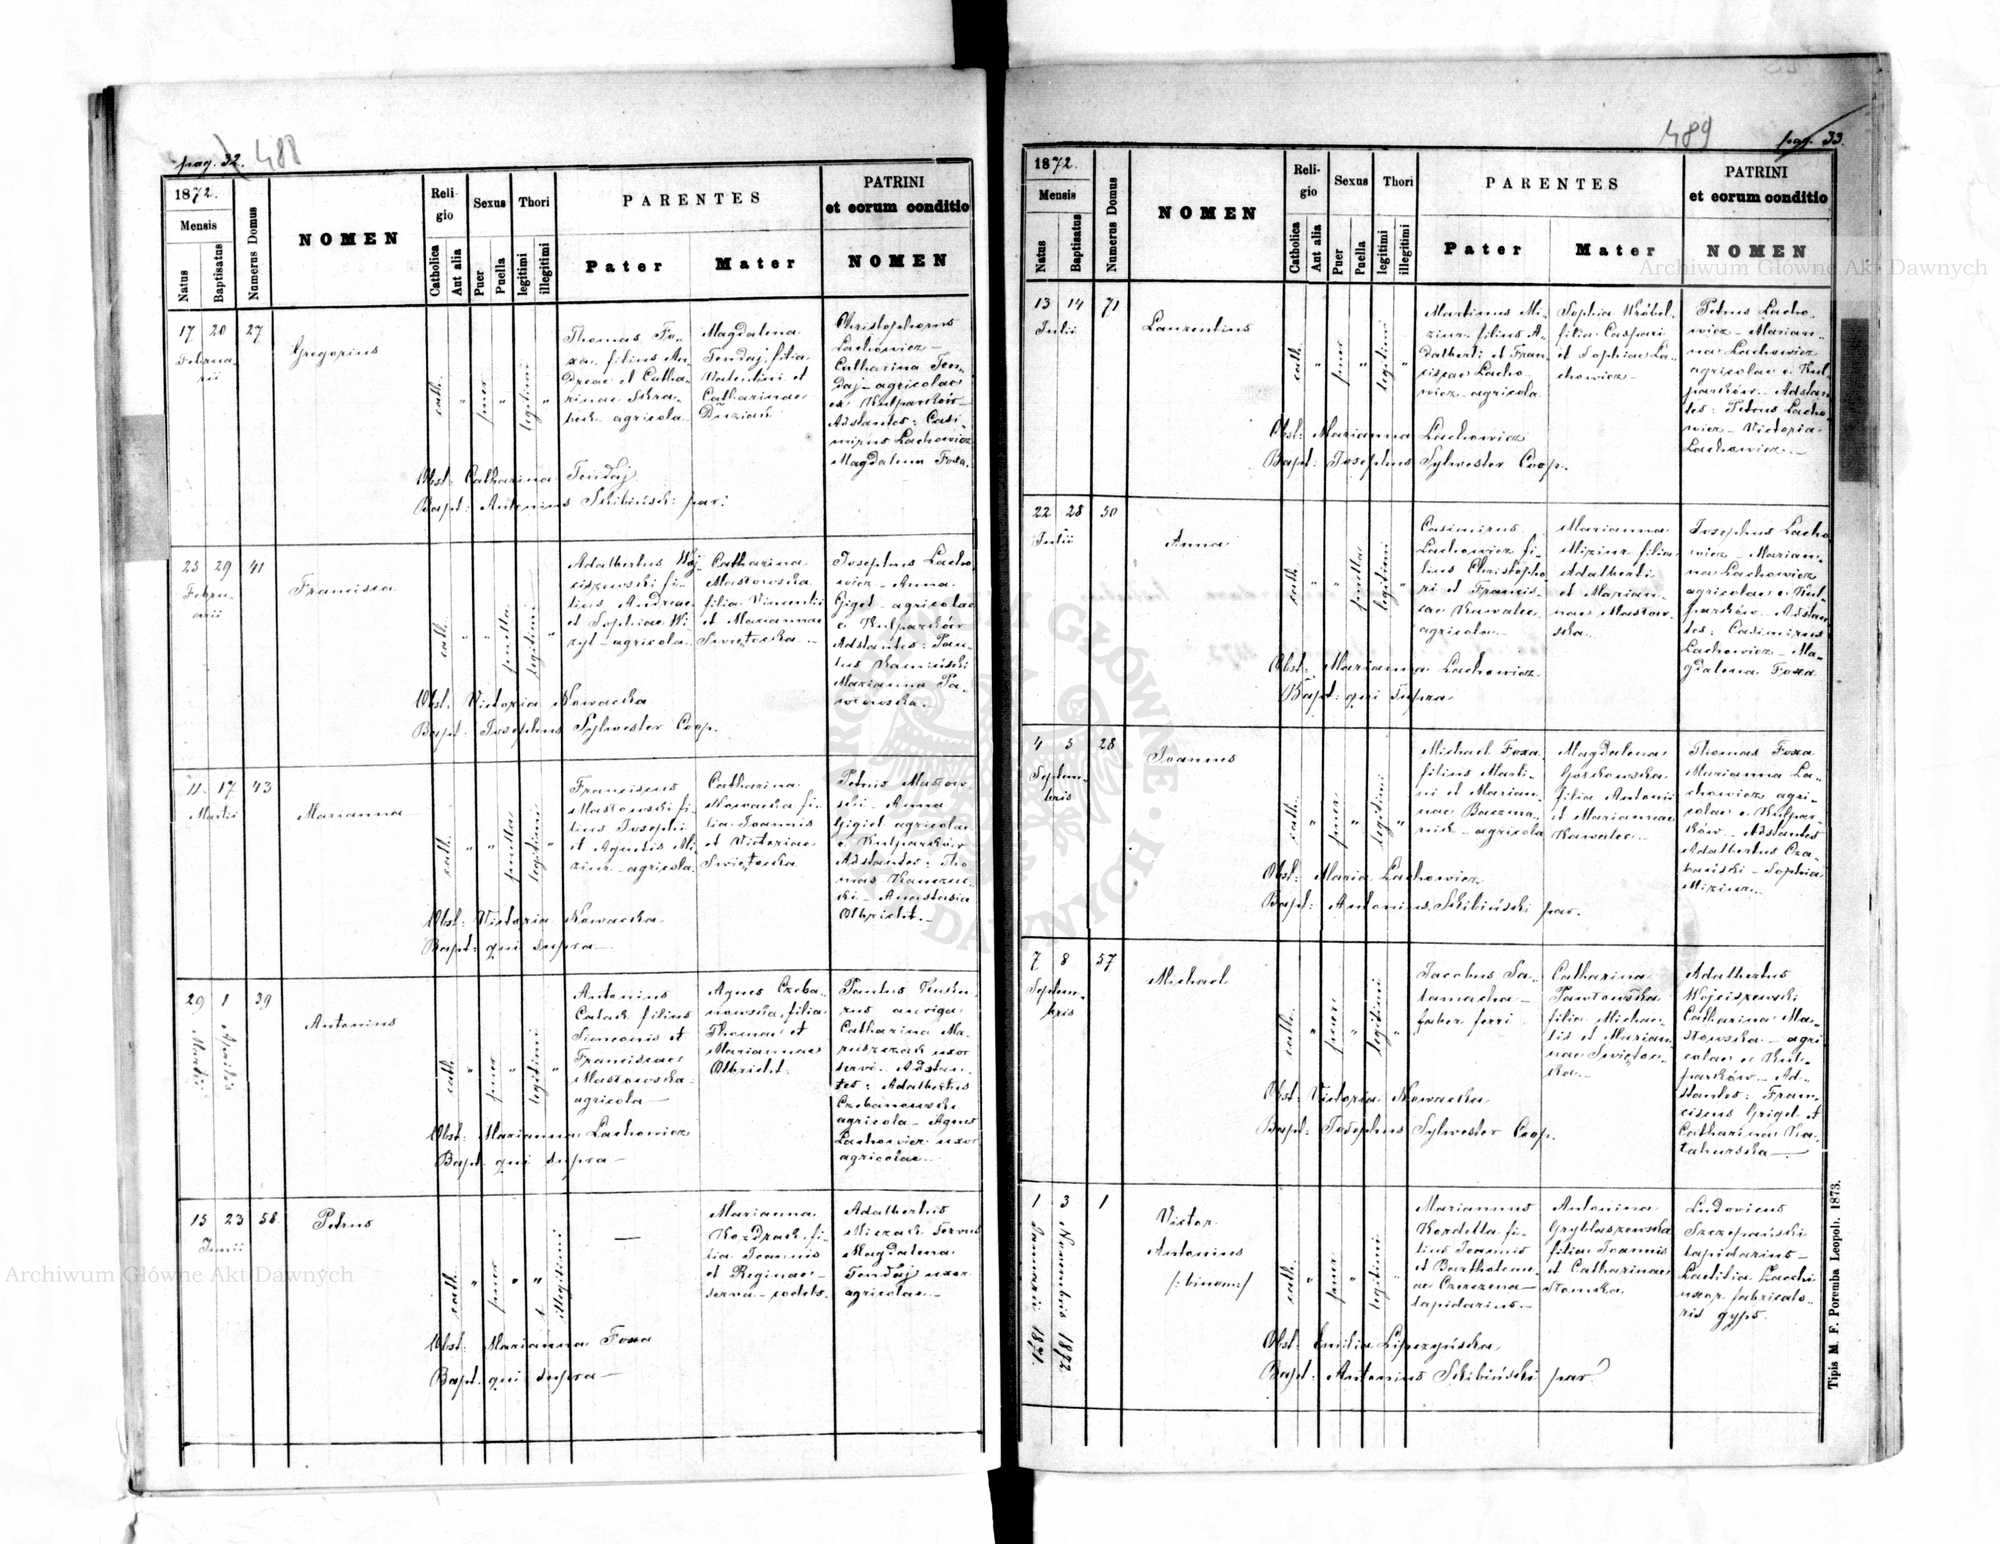 pag. 32. 488
1872.
Mensis
Natus
Baptisatus
Numerus Domus
NOMEN
Reli-
gio
Catholica
Aut alia
Sexus
Puer
Puella
Thori
legitimi
illegitimi
PARENTES
Pater
Mater
PATRINI
et eorum conditio
NOMEN
17 20 27
Februa-
rii
Gregorius
cath. " puer " legitimi "
Thomas Fo-
xa, filius An-
dreae et Catha-
rinae Skra-
bek agricola
Magdalena
Tendaj, filia
Valentini et
Catharinae
Duziak
Christophorus
Lachowicz –
Catharina Ten-
daj – agricolae
ex Kulparków –
Adstantes: Casi-
mirus Lachowicz
Magdalena Foxa.
Obst: Catharina Tendaj
Bapt: Antonius Skibiński par:
25 29 41
Febru-
arii
Francisca
cath. " " puella legitimi "
Adalbertus Woj-
ciszewski fi-
lius Andreae
et Sophiae Wi-
zyt – agricola
Catharina
Masłowska
filia Vincentii
et Mariannae
Swiętocka –
Josephus Lacho-
wicz – Anna
Giget – agricolae
e Kulparków
Adstantes: Pau-
lus Kamiński
Marianna Pa-
włowska. –
Obst. Victoria Nowacka
Bapt: Josephus Sylwester Coop.
11 17 43
Martii
Marianna
cath. " " puella legitimi "
Franciscus
Masłowski fi-
lius Josephi
et Agnetis Mi-
ziur – agricola
Catharina
Nowacka fi-
lia Joannis
et Victoriae
Swiętocka
Petrus Masłow-
ski – Anna
Gigiel agricolae
e Kulparków
Adstantes: Tho-
mas Kanczuc-
ki – Anastasia
Olbricht. –
Obst: Victoria Nowacka
Bapt: qui supra –
29 1 39
Martii Aprilis
Antonius
cath. " puer " legitimi "
Antonius
Calak filius
Simeonis et
Franciscae
Masłowska
agricola –
Agnes Czeba-
nowska, filia
Thomae et
Mariannae
Olbricht.
Paulus Kuku-
rus auriga
Catharina Ma-
ruszczak uxor
servi. Adstan-
tes: Adalbertus
Czebanowski
agricola – Agnes
Lachowicz uxor
agricolae. –
Obst: Marianna Lachowicz
Bapt. qui supra –
15 23 58
Junii
Petrus
cath. " puer " " illegitimi
—
Marianna
Kozdrach fi-
lia Joannis
et Reginae –
serva – coelebs.
Adalbertus
Miczach servus
Magdalena
Tendaj uxor
agricolae –
Obst: Marianna Foxa
Bapt. qui supra –
489 pag. 33.
1872.
Mensis
Natus
Baptisatus
Numerus Domus
NOMEN
Reli-
gio
Catholica
Aut alia
Sexus
Puer
Puella
Thori
legitimi
illegitimi
PARENTES
Pater
Mater
PATRINI
et eorum conditio
NOMEN
13 14 71
Julii
Laurentius
cath. " puer " legitimi "
Martinus Mi-
ziur filius A-
dalberti et Fran-
ciscae Lacho-
wicz – agricola
Sophia Wróbel
filia Caspari
et Sophiae La-
chowicz –
Petrus Lacho-
wicz – Marian-
na Lachowicz
agricolae e Kul-
parków. Adstan-
tes: Petrus Lacho-
wicz – Victoria
Lachowicz. –
Obst: Marianna Lachowicz
Bapt: Josephus Sylwester Coop.
22 28 50
Julii
Anna
cath. " " puella legitimi "
Casimirus
Lachowicz fi-
lius Christopho-
ri et Francis-
cae Kawalec
agricola –
Marianna
Miziur filia
Adalberti
et Marian-
nae Masłow-
ska. –
Josephus Lacho-
wicz – Marian-
na Lachowicz
agricolae e Kul-
parków. Adstan-
tes: Casimirus
Lachowicz – Ma-
gdalena Foxa
Obst: Marianna Lachowicz
Bapt: qui supra
4 5 28
Septem-
bris
Joannes
cath. " puer " legitimi "
Michael Foxa
filius Marti-
ni et Marian-
nae Baczma-
niuk – agricola
Magdalena
Gorkowska
filia Antonii
et Mariannae
Kawalec. –
Thomas Foxa
Marianna La-
chowicz agri-
colae e Kulpar-
ków. – Adstantes
Adalbertus Cza-
bański – Sophia
Miziur. –
Obst: Maria Lachowicz
Bapt: Antonius Skibiński par.
7 8 57
Septem-
bris
Michael
cath. " puer " legitimi "
Jacobus Sa-
lamacha –
faber ferri
Catharina
Pawłowska
filia Michae-
lis et Marian-
nae Swiętoc-
ka. –
Adalbertus
Wojciszewski
Catharina Ma-
słowska – agri-
colae e Kul-
parków – Ad-
stantes: Fran-
ciscus Grigel et
Catharina Ka-
tahurska –
Obst: Victoria Nowacka
Bapt: Josephus Sylwester Coop.
1 3 1
Januarii 1871. Novembris 1872
Victor
Antonius
/: binom:/
cath. " puer " legitimi "
Mariannus
Kordella fi-
lius Joannis
et Bartholome-
ae Czerzena –
lapidarius. –
Antonina
Grybłaszewska
filia Joannis
et Catharinae
Słomska
Ludovicus
Szczepański
lapidarius –
Laetitia Zacchi
uxor fabricato-
ris gyps.
Obst: Emilia Lipczyńska
Bapt. Antonius Skibiński par.
Tipis M. F. Poremba Leopoli. 1873.
Archiwum Główne Akt Dawnych
Archiwum Główne Akt Dawnych
ARCHIWUM GŁÓWNE AKT DAWNYCH